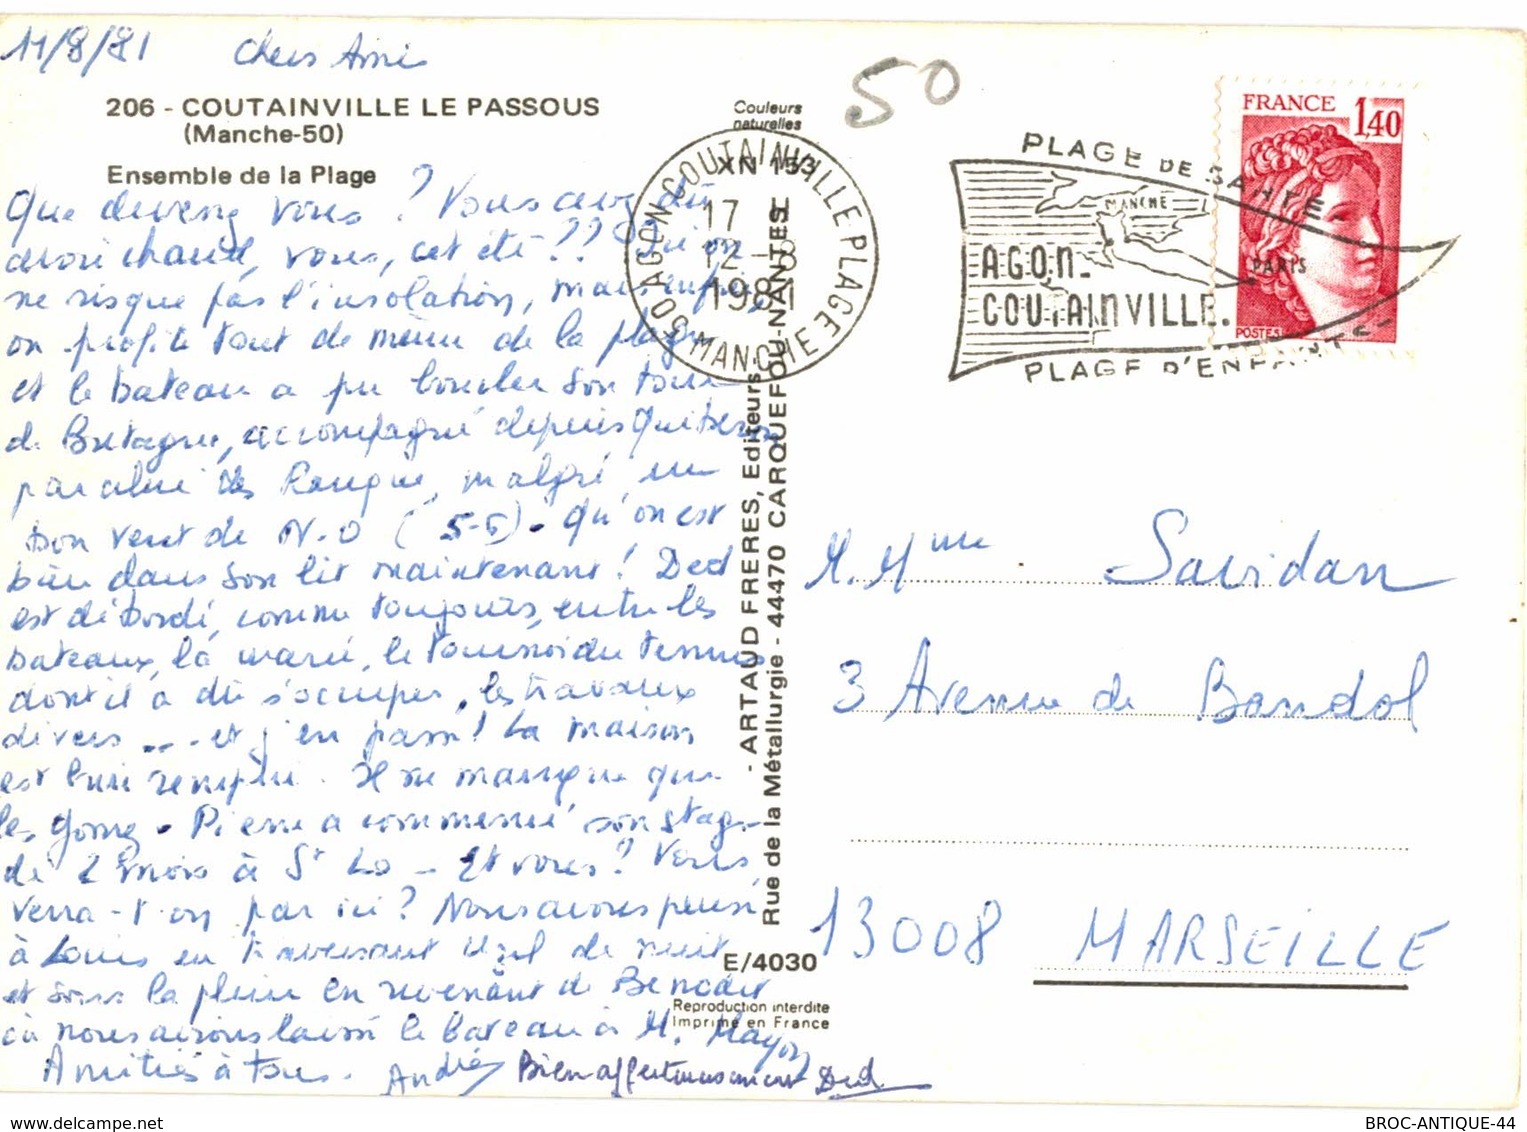 11/8/81 Chers Amis
206 - COUTAINVILLE LE PASSOUS
(Manche-50)
Ensemble de la Plage
Que devenez vous ? Vous avez dû
avoir chaud, vous, cet été ?? Ici on
ne risque pas l'insolation, mais enfin,
on profite tout de même de la plage
et le bateau a pu boucler son tour
de Bretagne, accompagné depuis Quiberon
par celui des Rouque, malgré un
bon vent de N.O (5-6). Qu'on est
bien dans son lit maintenant ! Ded
est débordé, comme toujours, entre les
bateaux, la marée, le tournoi du tennis
dont il a dû s'occuper, les travaux
divers ... et j'en passe ! La maison
est bien remplie. Il ne manque que
les Gomez. Pierre a commencé son stage
de 2 mois à St Lo - Et vous ? Vous
verra-t-on par ici ? Nous avons pensé
à Louis en traversant Uzel de nuit
et sous la pluie en revenant de Benodet
où nous avions laissé le bateau à M. Mayon
Amitiés à tous. Andrée Bien affectueusement Ded
Couleurs
naturelles
XN 153
50 AGON-COUTAINVILLE PLAGE
17 H
12 -8
1981
MANCHE
- ARTAUD FRERES, Editeurs
Rue de la Métallurgie - 44470 CARQUEFOU-NANTES
E/4030
Reproduction interdite
Imprimé en France
50
PLAGE DE SANTE
MANCHE
PARIS
AGON-
COUTAINVILLE.
PLAGE D'ENFANTS
FRANCE 1,40
POSTES
M. Mme Savidan
3 Avenue de Bandol
13008 MARSEILLE
BROC-ANTIQUE-44